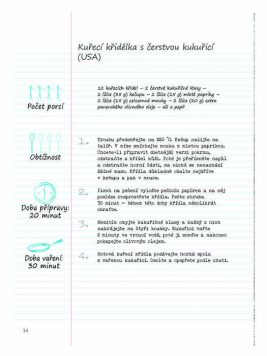 Kuřecí křidélka s čerstvou kukuřicí
(USA)
12 kuřecích křídel – 2 čerstvé kukuřičné klasy –
2 lžíce (25 g) kečupu – 2 lžíce (15 g) mleté papriky –
2 lžíce (15 g) celozrnné mouky – 2 lžíce (20 g) extra
panenského olivového oleje – sůl a pepř
Počet porcí
1. Troubu předehřejte na °C. Kečup nalijte na
talíř. V míse smíchejte mouku s mletou paprikou.
Chcete-li připravit dietnější verzi pokrmu,
odstraňte z křídel kůži. Poté je přidržte napůl
a odstraňte horní části, na nichž se nenachází
žádné maso. Křídla důkladně obalte nejdříve
v kečupu a pak v mouce.
Obtížnost
2. Plech na pečení vyložte pečicím papírem a na něj
položte křídla. Pečte zhruba
30 minut – během této doby křídla několikrát
obraťte.
Doba přípravy:
20 minut
3. Mezitím omyjte kukuřičné klasy a každý z nich
nakrájejte na čtyři kousky. Kukuřici vařte
8 minuty ve vroucí vodě, poté ji osolte a nakonec
pokapejte olivovým olejem.
4. Hotová kuřecí křídla podávejte horká spolu
s vařenou kukuřicí. Osolte a opepřete podle chuti.
Doba vaření:
30 minut
14